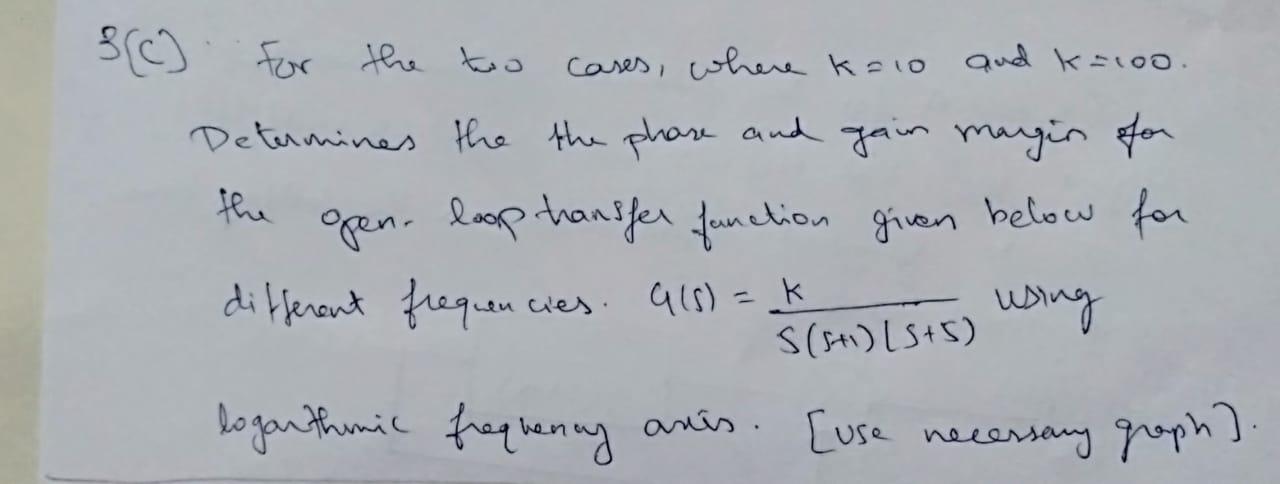 3(C) For the two cases, where K=10 and K=100.
Determines the the phase and gain margin for
the open-loop transfer function given below for
different frequencies. G(S) = K / S(S+1)(S+5) using
logarithmic frequency axis. [Use necessary graph].